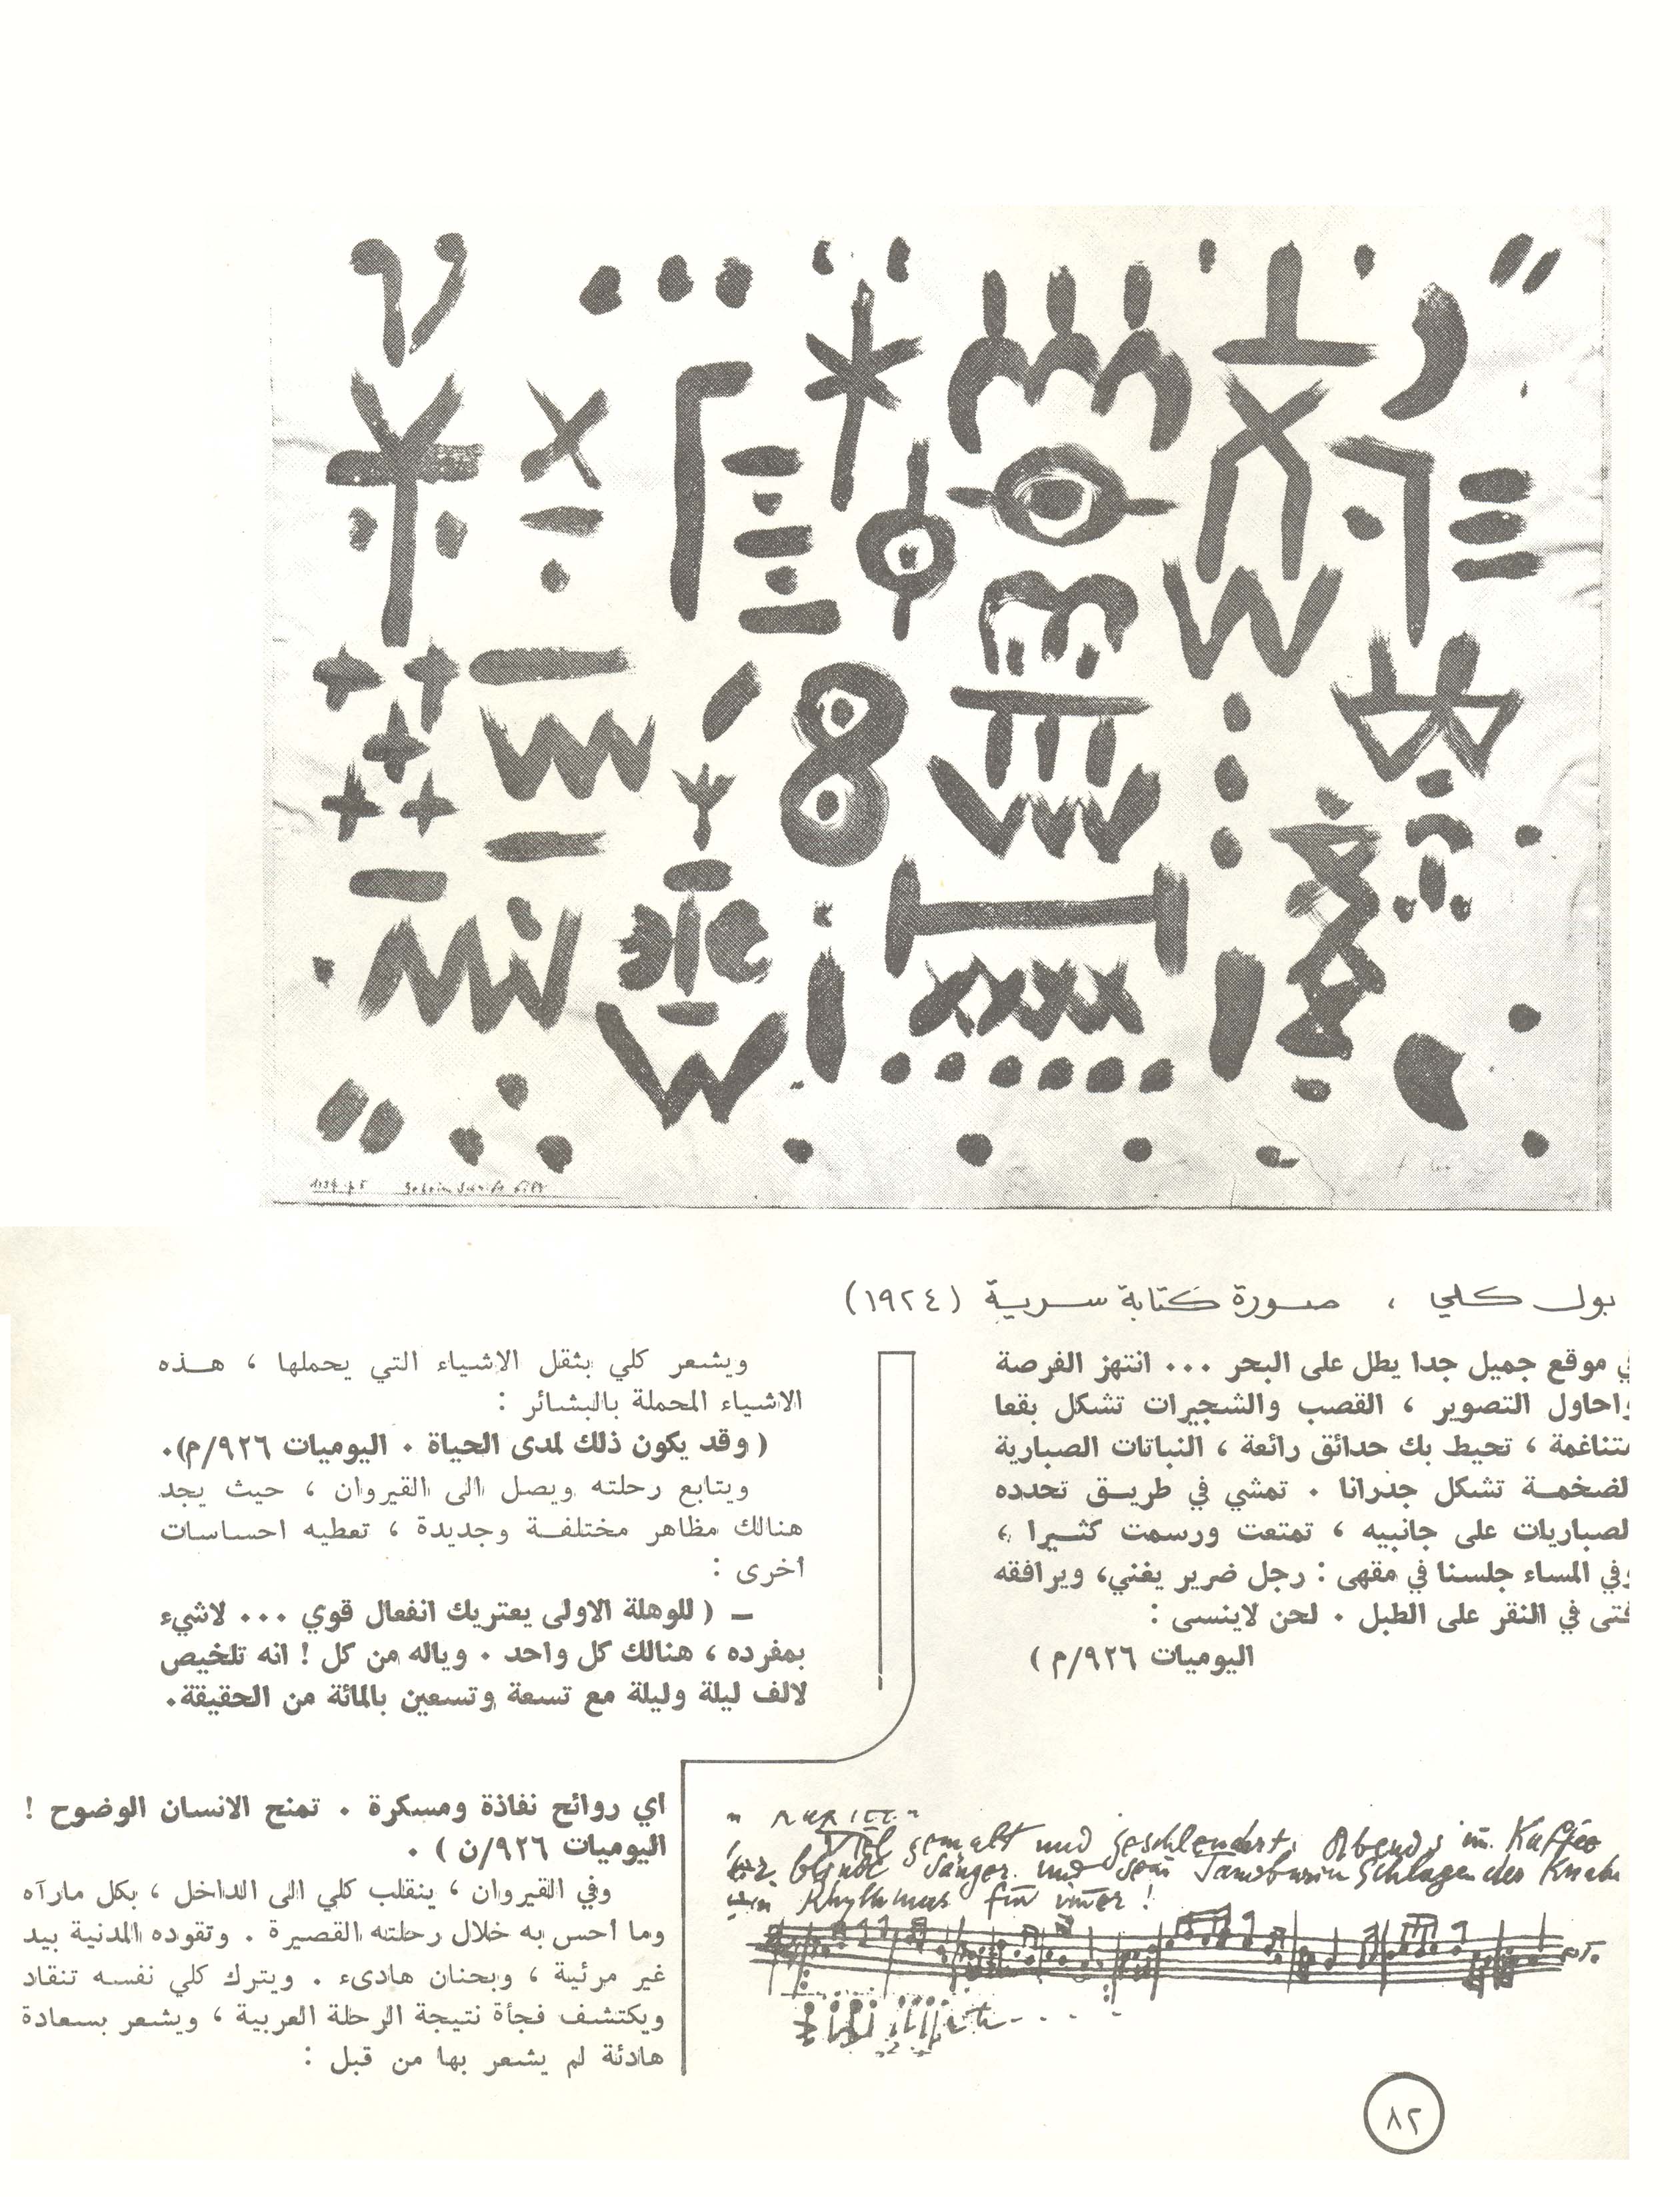 بول كلي ، صورة كتابة سرية (١٩٢٤)
في موقع جميل جدا يطل على البحر ... انتهز الفرصة
واحاول التصوير ، القصب والشجيرات تشكل بقعا
متناغمة ، تحيط بك حدائق رائعة ، النباتات الصبارية
الضخمة تشكل جدرانا . تمشي في طريق تحدده
الصباريات على جانبيه ، تمتعت ورسمت كثيرا ،
وفي المساء جلسنا في مقهى : رجل ضرير يغني، ويرافقه
فتى في النقر على الطبل . لحن لاينسى :
اليوميات ٩٢٦/م )
Viel gemalt und geschlendert. Abends im Kaffee
blinde Sänger und sein Tambourin Schlagender Knabe
Rhythmus für immer !
ويشعر كلي بثقل الاشياء التي يحملها ، هذه
الاشياء المحملة بالبشائر :
( وقد يكون ذلك لمدى الحياة . اليوميات ٩٢٦/م).
ويتابع رحلته ويصل الى القيروان ، حيث يجد
هنالك مظاهر مختلفة وجديدة ، تعطيه احساسات
اخرى :
– ( للوهلة الاولى يعتريك انفعال قوي ... لاشيء
بمفرده ، هنالك كل واحد . وياله من كل ! انه تلخيص
لالف ليلة وليلة مع تسعة وتسعين بالمائة من الحقيقة.
اي روائح نفاذة ومسكرة . تمنح الانسان الوضوح !
اليوميات ٩٢٦/ن ) .
وفي القيروان ، ينقلب كلي الى الداخل ، بكل مارآه
وما احس به خلال رحلته القصيرة . وتقوده المدنية بيد
غير مرئية ، وبحنان هادىء . ويترك كلي نفسه تنقاد
ويكتشف فجأة نتيجة الرحلة العربية ، ويشعر بسعادة
هادئة لم يشعر بها من قبل :
٨٢